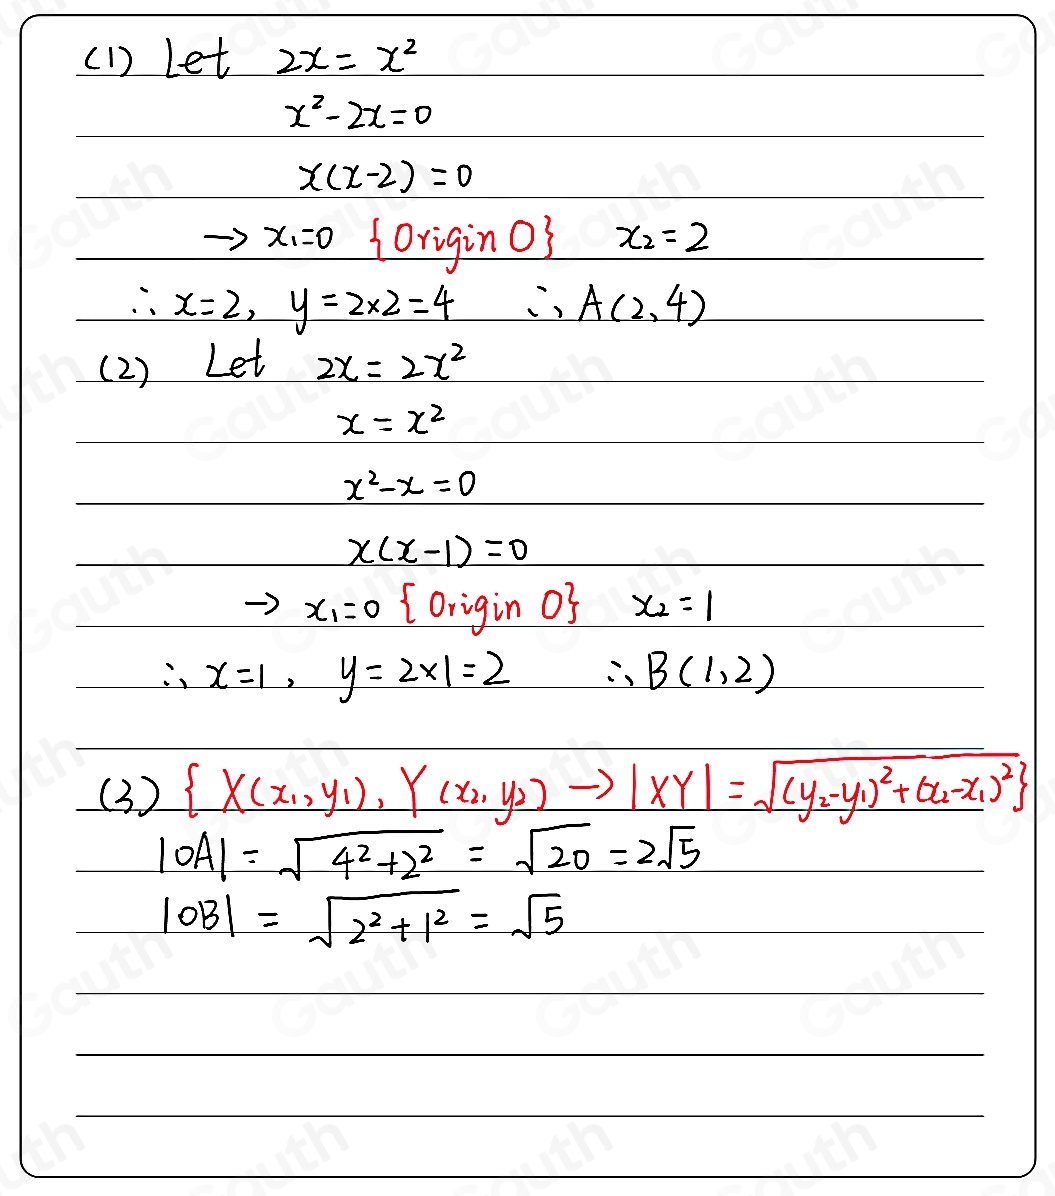 (1) Let 2x = x²
x² - 2x = 0
x(x-2) = 0
→ x₁=0 {Origin O} x₂ = 2
∴ x=2, y = 2×2=4 ∴ A(2,4)
(2) Let 2x = 2x²
x = x²
x² - x = 0
x(x-1) = 0
→ x₁=0 {Origin O} x₂ = 1
∴ x=1, y = 2×1=2 ∴ B(1,2)
(3) {X(x₁,y₁), Y(x₂,y₂) → |XY| = √((y₂-y₁)²+(x₂-x₁)²)}
|OA| = √(4²+2²) = √20 = 2√5
|OB| = √(2²+1²) = √5